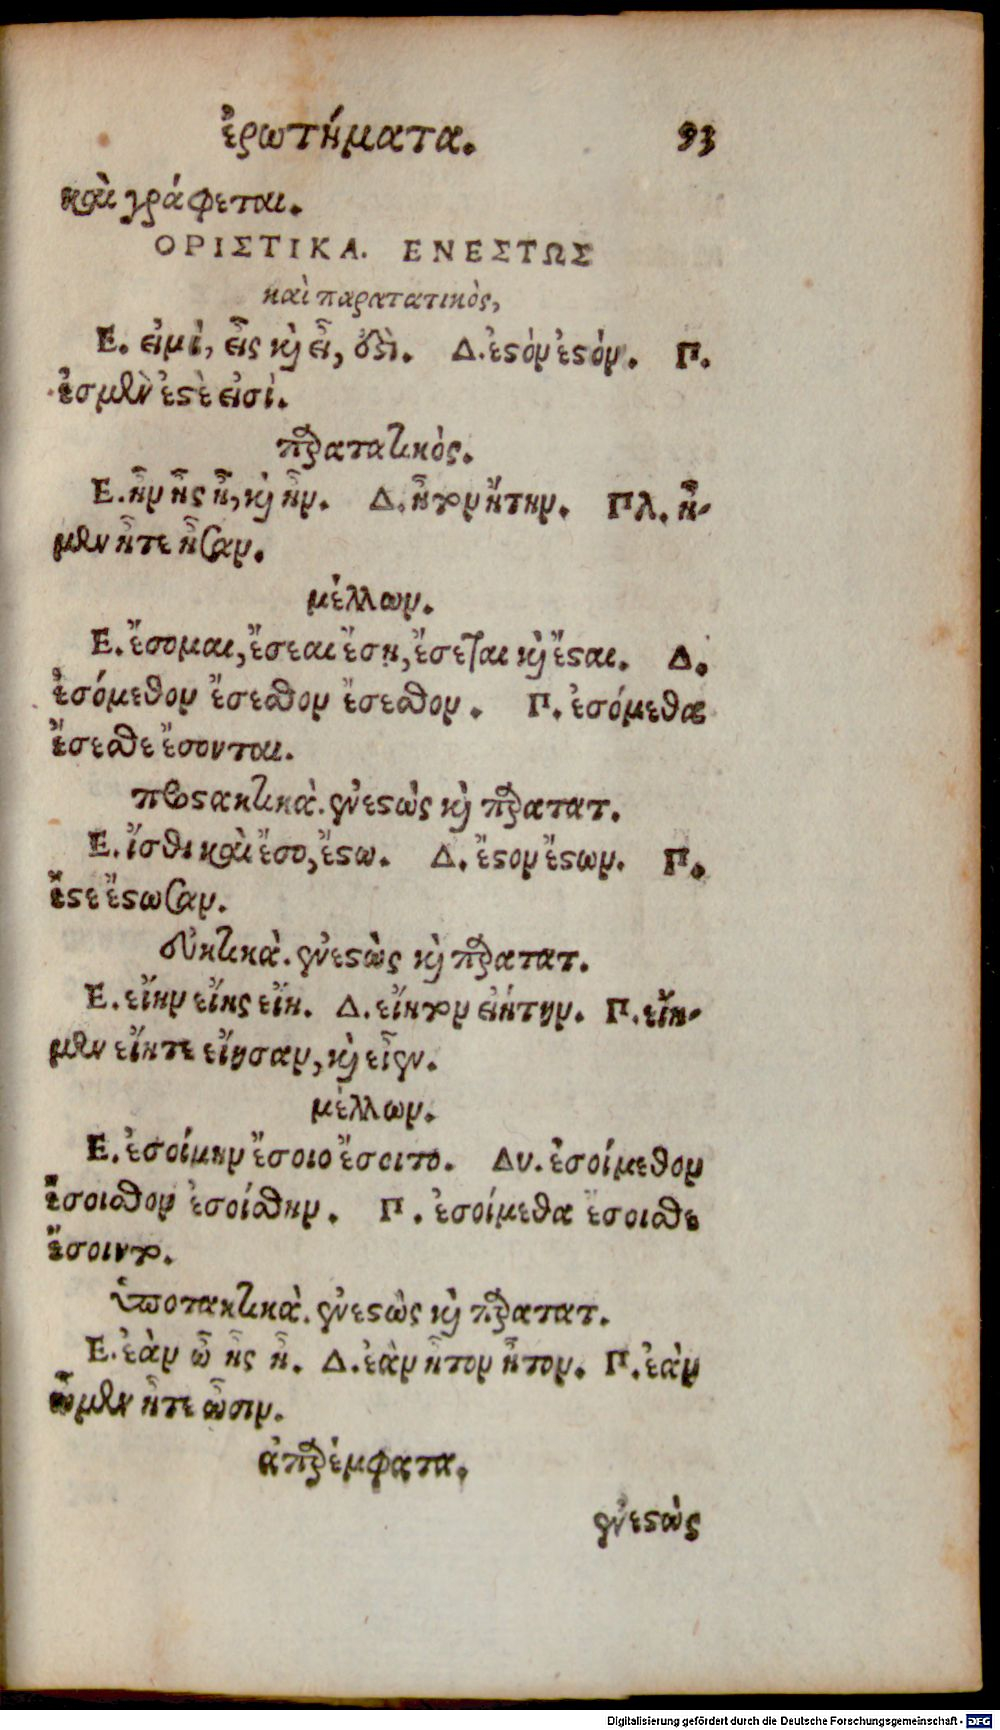 ἐρωτήματα. 93
καὶ γράφεται.
ΟΡΙΣΤΙΚΑ. ΕΝΕΣΤΩΣ
καὶ παρατατικὸς,
Ε. εἰμὶ, εἶς κὶ εἶ, ἐστὶ. Δ. ἐστὸν ἐστόν. Π.
ἐσμὲν ἐστὲ εἰσί.
παρατατικὸς.
Ε. ἦν ἦς ἦ, κὶ ἦν. Δ. ἦτον ἤτην. Πλ. ἦ-
μεν ἦτε ἦσαν.
μέλλων.
Ε. ἔσομαι, ἔσεαι ἔσῃ, ἔσεται κὶ ἔσται. Δ.
ἐσόμεθον ἔσεσθον ἔσεσθον. Π. ἐσόμεθα
ἔσεσθε ἔσονται.
προστακτικὰ. ἐνεστὼς κὶ παρατατ.
Ε. ἴσθι καὶ ἔσο, ἔστω. Δ. ἔστον ἔστων. Π.
ἔστε ἔστωσαν.
εὐκτικὰ. ἐνεστὼς κὶ παρατατ.
Ε. εἴην εἴης εἴη. Δ. εἴητον εἰήτην. Π. εἴη-
μεν εἴητε εἴησαν, κὶ εἶεν.
μέλλων.
Ε. ἐσοίμην ἔσοιο ἔσοιτο. Δυ. ἐσοίμεθον
ἔσοισθον ἐσοίσθην. Π. ἐσοίμεθα ἔσοισθε
ἔσοιντο.
ὑποτακτικὰ. ἐνεστὼς κὶ παρατατ.
Ε. ἐὰν ὦ ἦς ἦ. Δ. ἐὰν ἦτον ἦτον. Π. ἐὰν
ὦμεν ἦτε ὦσιν.
ἀπαρέμφατα.
ἐνεστὼς
Digitalisierung gefördert durch die Deutsche Forschungsgemeinschaft - DFG